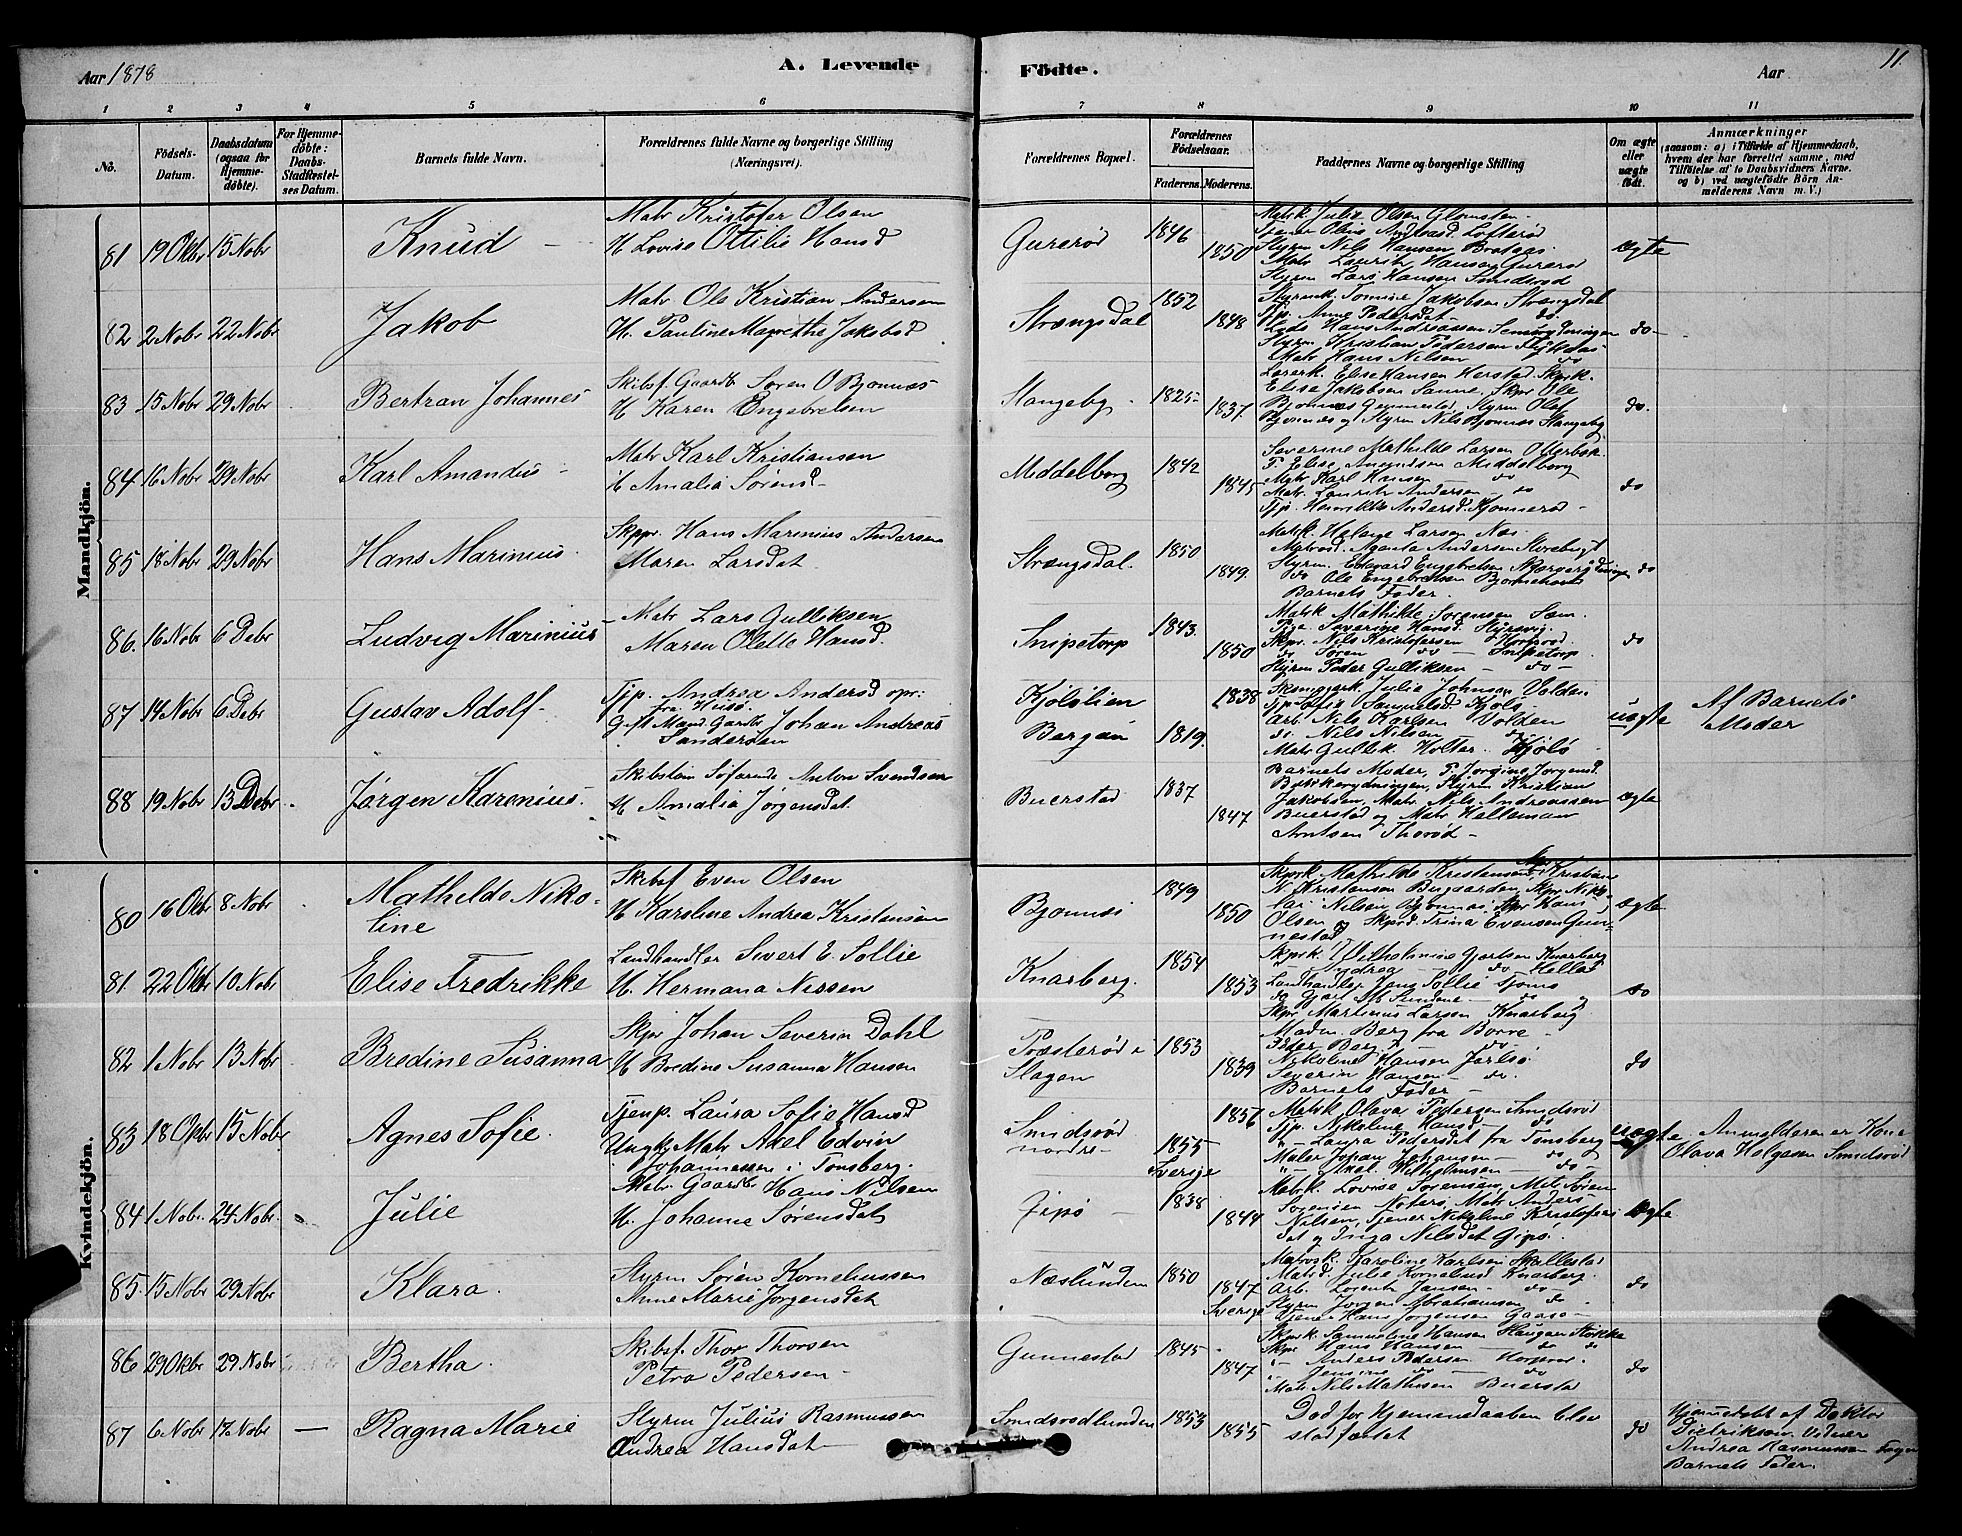 Aar 1878
A. Levende
Födte.
Aar
11.
1 2 3 4 5 6 7 8 9 10 11
No.
Födsels-
Datum.
Daabsdatum
(ogsaa for
Hjemme-
döbte).
For Hjemme-
döbte:
Daabs-
Stadfæstel-
ses Datum.
Barnets fulde Navn.
Forældrenes fulde Navne og borgerlige Stilling
(Næringsvei).
Forældrenes Bopæl.
Forældrenes
Födselsaar.
Faderens. Moderens.
Faddernes Navne og borgerlige Stilling
Om ægte
eller
uægte
födt.
Anmærkninger
(saasom: a) i Tilfælde af Hjemmedaab,
hvem der har forrettet samme, med
Tilföielse af to Daabsvidners Navne,
og b) ved uægtefödte Börn An-
melderens Navn m. V.)
Mandkjön.
81 19 Oktbr 15 Nobr
Knud
Matr Kristofer Olsen
H. Lovise Ottilie Hansd
Gurerød
1846
1850
Matrk Julie Olsen Glomsten
Styrm Nils Hansen Brataas
Matr Lauritz Hansen Gurerød
Styrm Lars Hansen Smidsrød
ægte
82 2 Nobr 22 Nobr
Jakob
Matr Ole Kristian Andersen
H. Pauline Magrethe Jakobsd
Strængsdal
1852
1848
Styrmk. Tomine Jakobsen Strængsdal
Tjp. Anne Pedersdt do
Lods Hans Andreassen
Styrm Kristian Pedersen
Matr Hans Nilsen do
do
83 15 Nobr 29 Nobr
Bertran Johannes
Skibsf. Gaardbr Søren O Bjonnæs
H Karen Engebretsen
Stangeby
1825
1837
Lærerk. Elise Hansen Herstad, Skprk.
Elise Jakobsen Sanne, Skpr Ole
Bjonnæs Gunnestad, Styrm Olaf
Bjonnæs og Styrm Nils Bjonnæs Stangeby
do.
84 16 Nobr 29 Nobr
Karl Amandus
Matr Karl Kristiansen
H Amalia Sørensd
Middelborg
1842
1845
Severine Mathilde Larsen
P. Elise Amundsen Middelborg
Matr Karl Hansen do
Matr. Lauritz Andersen do
Tjp. Henrikke Andersd. Kjonnerød
do
85 18 Nobr 29 Nobr
Hans Marinius
Skppr. Hans Marinius Andersen
Maren Larsdat
Strængsdal.
1850
1849.
Matrk. Helene Larsen Næs
Matrosd. Agenta Andersen
Styrm. Edevard Engebretsen
do Ole Engebretsen
Barnets Fader.
do
86. 16 Nobr 6 Debr
Ludvig Marinius
Matr Lars Gulliksen
Maren Olette Hansd.
Snipetorp
1843.
1850
Matrk Mathilde Sorensen Sem
Pige Severine Hansd.
Skpr. Nils Kristofersen
do Søren do Snipetorp
Styrm Peder Gulliksen do
do
87 14 Nobr 6 Debr
Gustav Adolf
Tjp. Andrea Andersd opr:
fra Husø.
Gift Mand Gaardbr Johan Andreas
Sandersen
Kjølslien
Bergan
1838
1819.
Julie Johnsen Volden
Tjp Sofie Samuelsd Kjøls
Arb. Nils Karlsen Volden
do. Nils Nilsen do
Matr Gullik Holter Kjøls
uægte
Af Barnets
Moder
88 19 Nobr 13 Debr
Jørgen Karenius.
Skibstøm Søfarende Anton Svendsen
H Amalia Jørgensdat
Buerstad
1837
1847
Barnets Moder, P. Jorgine Jorgensd.
Buskkerydningen, Styrm Kristian
Jakobsen, Matr. Nils Andreassen
Buerstad og Matr Helleman
Arntsen Thorød
ægte
Kvindekjön.
80 16 Oktbr 8 Nobr
Mathilde Niko-
line
Skibsf Even Olsen
H Karoline Andrea Kristensen
Bjonnæs
1849
1850
Skprk Mathilde Kristensen, Skpr Kristian
N. Kristensen Bugaarden, Skpr Niko-
lai Nilsen Bjonnæs Skpr Hans
Olsen og Skprd. Trina Evensen Gun-
nestad
ægte
81 22 Oktbr 10 Nobr
Elise Fredrikke
Landhandler Sivert E. Sollie
H. Hermana Nissen
Knarberg.
1854
1853
Skprk Wilhelmine Gjertsen Knarberg
Landhandler Jens Sollie Tjømø
Skpr Martinus Larsen Knarberg
do
82 1 Nobr 13 Nobr
Bredine Susanna
Skpr Johan Severin Dahl
H Bredine Susanna Hansen
Præsterød i
Slagen
1853
1839
Madm. Berg fra Borre
Peder Berg do
Nikoline Hansen Jarlsø
Severin Hansen do.
Barnets Fader
do
83 18 Oktbr 15 Nobr
Agnes Sofie.
Tjenp. Laura Sofie Hansd
Ungk Matr Axel Edvin
Johannessen i Tonsberg.
Smidsrød
nordre
1855
Sverige
1856
Matrk Olava Pedersen Smidsrød
Tjp. Nikoline Hansd do
" Laura Pedersdat fra Tonsberg
Maler Johan Johansen do
" Axel Wilhelmsen do
uægte
Anmelderen er Kone
Olava Holgesen Smidsrød
84 1 Nobr. 24 Nobr.
Julie
Matr Gaardbr Hans Nilsen
H. Johanne Sørensdat
Gipø
1838
1844
Matrk. Lovise Sorensen, Matr Søren
Sorensen Noterø, Matr Anders
Nilsen, Tjener Nikoline Kristofers
dat og Inga Nilsdat Gipø.
ægte
85. 15 Nobr 29 Nobr
Klara.
Styrm Søren Korneliussen
Anne Marie Jorgensdat
Næslunden
1850
1847
Sverige
Matrosk. Karoline Karlsen Skallestad
Matrd. Julie Kornelius Knarberg.
Arb. Lorents Jansen do
Styrm Jorgen Abrahamsen do
Tjener Hans Jorgensen Gaasø
do
86 29 Oktbr 29 Nobr
Bertha.
Skibsf. Thor Thorsen
Petra Pedersen
Gunnestad
1845
1847
Skprk. Samueline Hansen Haugan Stokke
Skpr Hans Hansen do do
" Anders Pedersen
" Jensine do do
Matr Nils Mathisen Buerstad
do
87 6 Nobr 17 Nobr —
Ragna Marie
Styrm Julius Rasmussen
Andrea Hansdat
Smidsrødlunden
1853
1855
Død før Hjemmedaaben blev
stadfæstet
do
Hjemmedøbt af Doktor
Dietrikson Vidner
Andrea Rasmussen og
Barnets Fader.